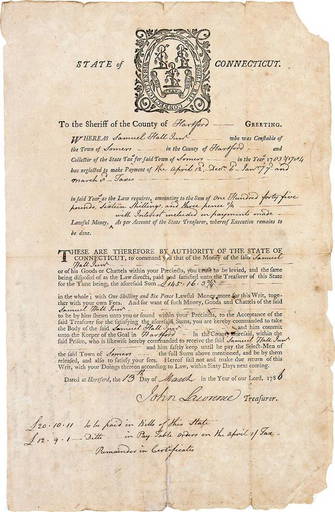 STATE of CONNECTICUT.
To the Sheriff of the County of Hartford GREETING.
WHEREAS Samuel Hall Junr who was Constable of
the Town of Somers in the County of Hartford and
Collector of the State Tax for said Town of Somers in the Year
has neglected to make Payment of the April 12, Decr 6. Janr 77 and
march Taxes
in said Year as the Law requires, amounting to the Sum of One Hundred forty five
pounds, Sixteen Shilling, and three pence ¾
with Interest included in payments made
Lawful Money, As per Account of the State Treasurer, whereof Execution remains to
be done.
THESE ARE THEREFORE BY AUTHORITY OF THE STATE OF
CONNECTICUT, to command you that of the Money of the said Samuel
Hall Junr
or of his Goods or Chattels within your Precincts, you cause to be levied, and the same
being disposed of as the Law directs, paid and satisfied unto the Treasurer of this State
for the Time being, the aforesaid Sum £145.16.3¾
in the whole; with One Shilling and Six Pence Lawful Money more for this Writ, together
with your own Fees. And for want of such Money, Goods and Chattels of the said
Samuel Hall Junr
to be by him shewn unto you or found within your Precincts, to the Acceptance of the
said Treasurer for the satisfying the aforesaid Sum, you are hereby commanded to take
the Body of the said Samuel Hall Junr and him commit
unto the Keeper of the Goal in Hartford in the County aforesaid, within the
said Prison, who is likewise hereby commanded to receive the said Samuel Hall
Junr and him safely keep until he pay the Select-Men of
the said Town of Somers the full Sums above mentioned, and be by them
released, and also to satisfy your fees. Hereof fail not and make due return of this
Writ, with your Doings thereon according to Law, within Sixty Days next coming.
Dated at Hartford, the 13th Day of March in the Year of our Lord, 1786
John Lawrence Treasurer.
£20.10.11 to be paid in Bills of this State
£12.9.1 Ditto in Pay Table orders on the April 12 Tax
Remainder in Certificates